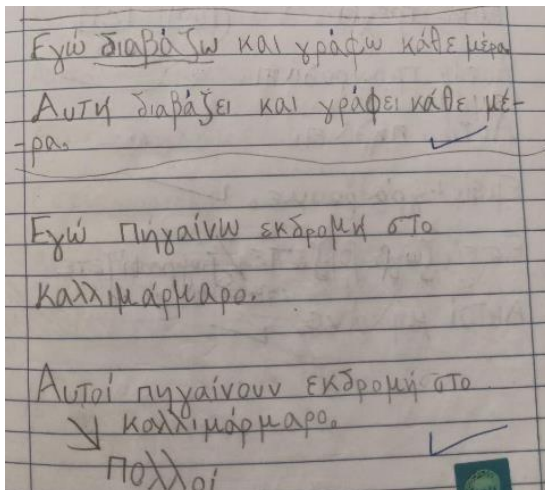 Εγώ διαβάζω και γράφω κάθε μέρα
Αυτή διαβάζει και γράφει κάθε μέ-
-ρα.
Εγώ πηγαίνω εκδρομή στο
καλλιμάρμαρο.
Αυτοί πηγαίνουν εκδρομή στο
καλλιμάρμαρο.
πολλοί